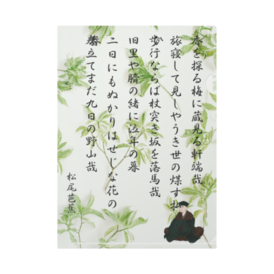 香を探る梅に蔵見る軒端哉
旅寝して見しやうき世の煤はらひ
歩行ならば杖突き坂を落馬哉
旧里や臍の緒に泣年の暮
二日にもぬかりはせじな花の春
春立てまだ九日の野山哉
松尾芭蕉